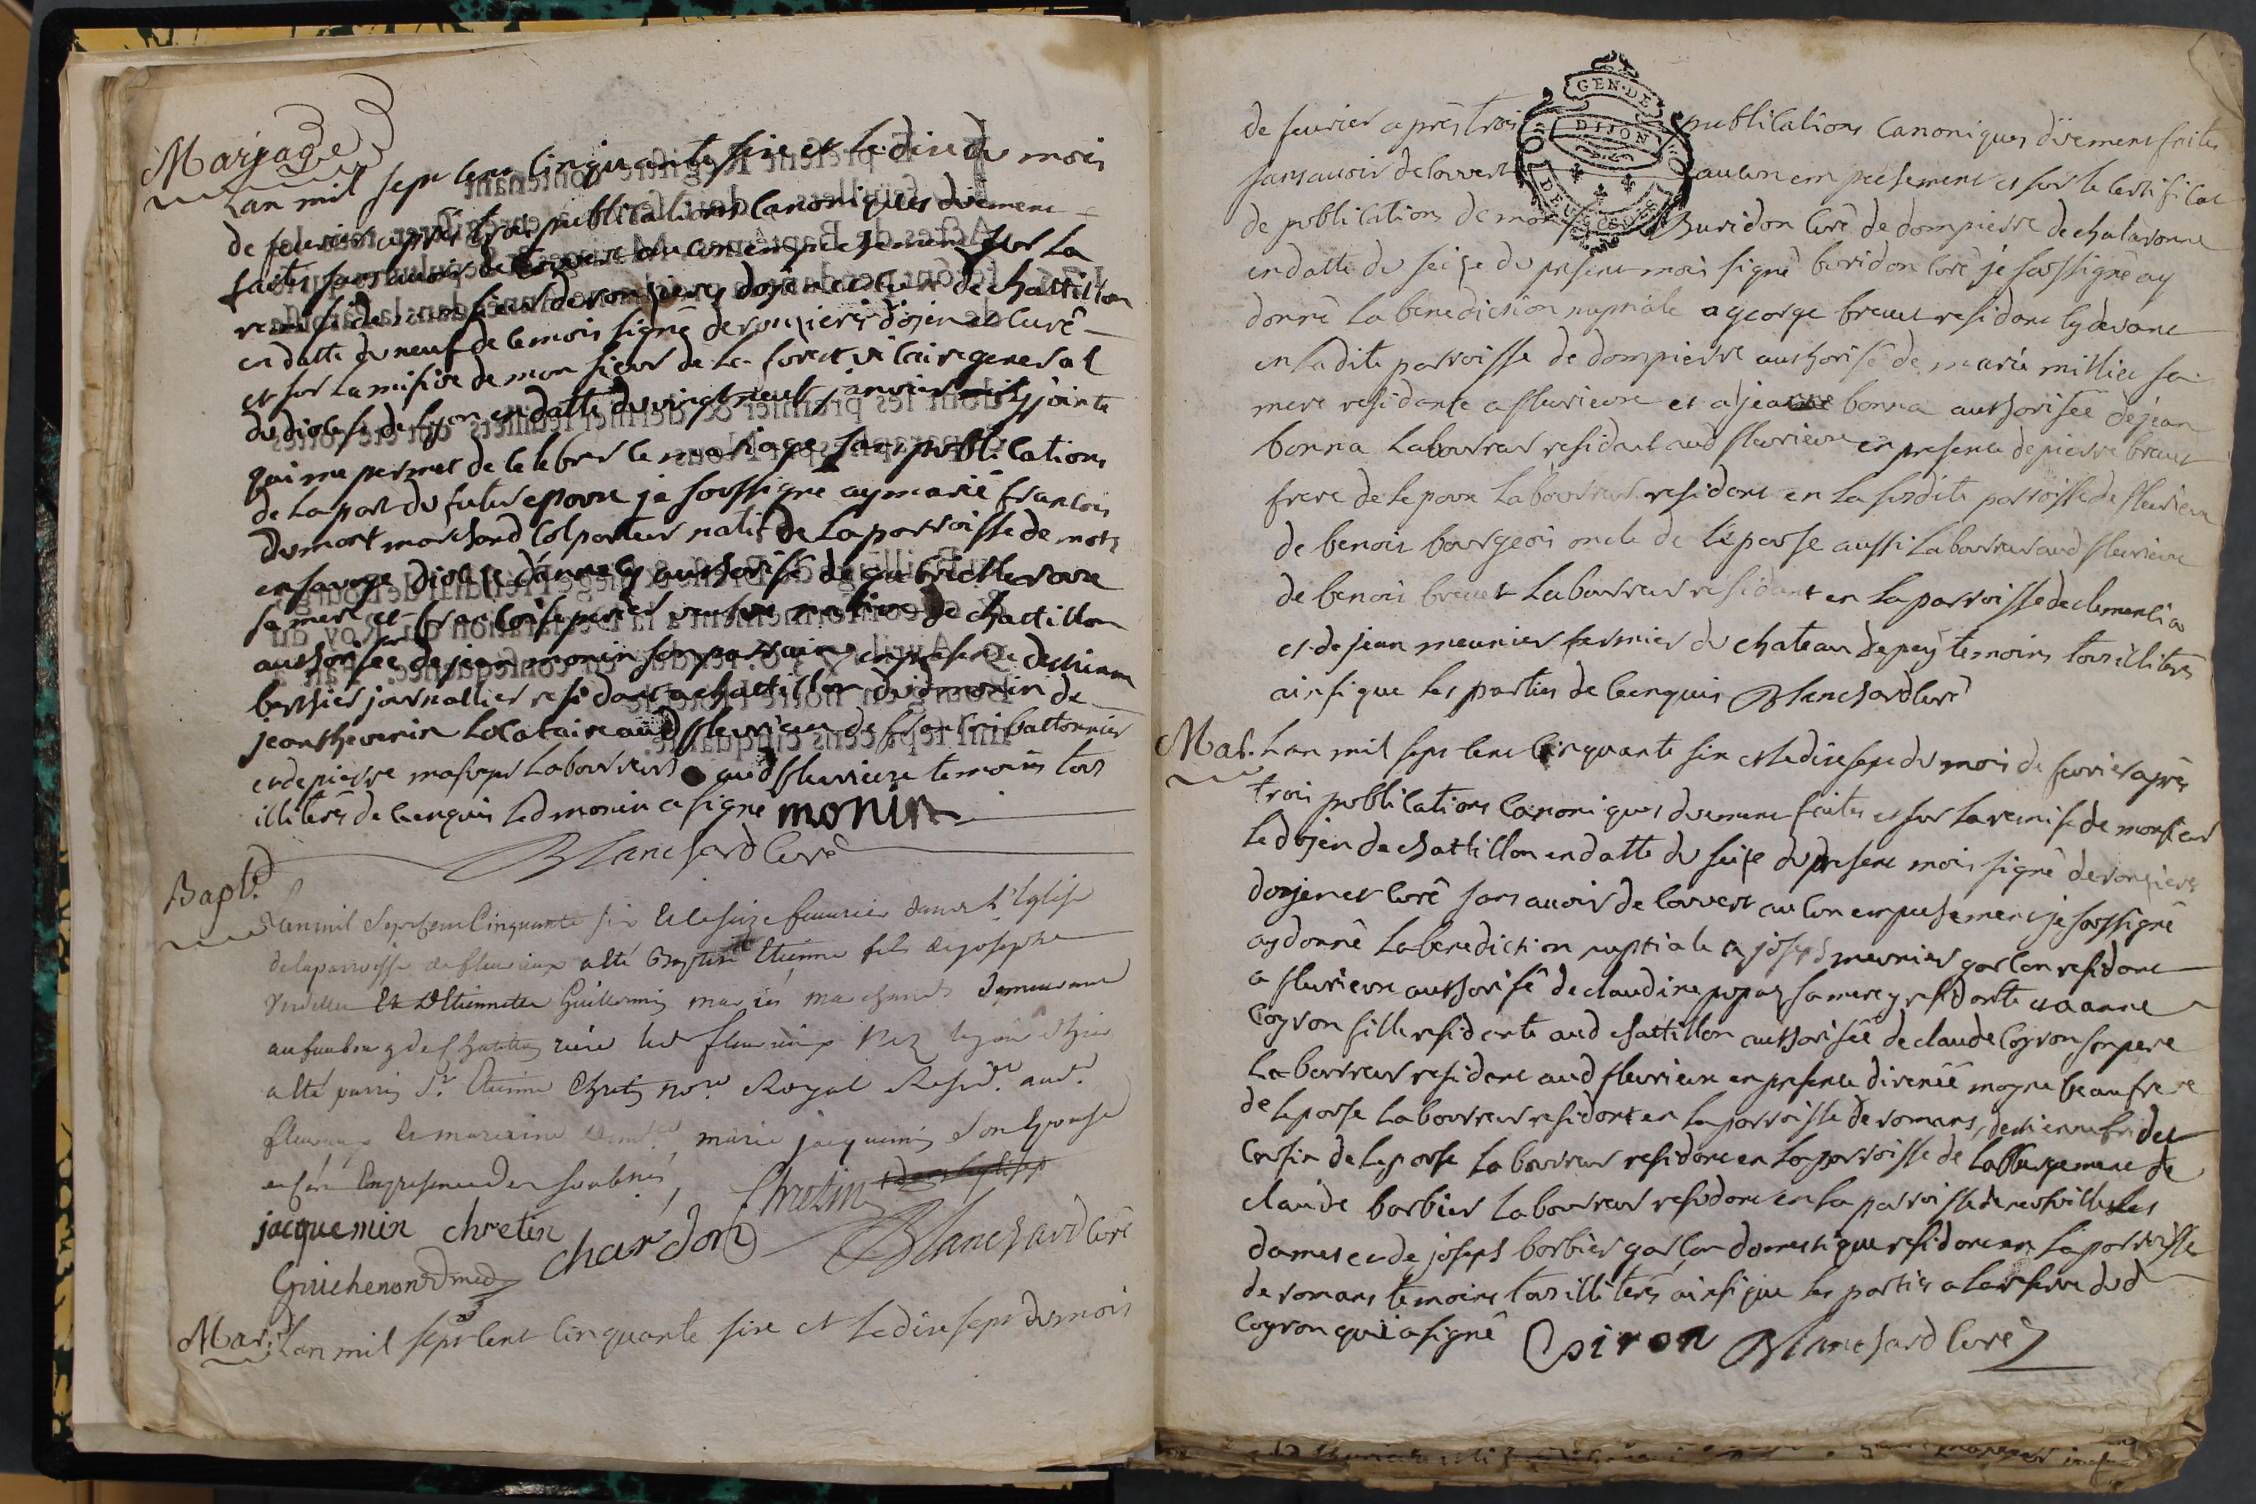 Mariage
Lan mil sept cent cinquante sixe et le dixe du mois
de fevrier apres trois publications canoniques duement
faites sans avoir decouvert aucun empechement sur la
remise de monsieur derouzieres dojen et curé de chatillon
en datte du neuf de ce mois signé derouzieres dojen et curé
et sur la misive de mon sieur de la forest vicaire general
du diocese de lyon en datte du vingt neuf janvier jointe
qui me permet de celebrer le mariage sans publications
de la part du futur epoux je soussigné ay marié francois
dumont marchand colporteur natif de la parroisse de
en savoye diocese dannecy authorisé de
sa mere et francoise perier veuve native de chatillon
authorisée de jean monin son parrain en presence detienne
berthier journallier residant a chatillon dud monin de
jean thevenin locataire aud fleurieux de francois battonnier
et de pierre masuyer laboureurs aud fleurieux temoins tous
illiterés de ce enquis led monin a signé monin
Blanchard curé
Bapt.
Lan mil sept cent cinquante six et le seize feuvrier dans l'Eglise
de la parroisse de fleurieux a été Baptisé Etienne fils de josephe
et Etiennette Guillermin mariés marchands demeurant
au faubourg de Chatillon rière led fleurieux né le jour d'hier
a été parrin Sr. Etienne Chretin nore. Royal Resid.t aud.
fleurieux et marraine marie jacquemin son Epouse
en presence des soubsnés
Chretin
jacquemin chretin chardon Blanchard curé
Guichenon Dmed
Mar. Lan mil sept cent cinquante sixe et le dixe sept du mois
de fevrier apres trois publications canoniques düement faites
sans avoir decouvert aucun empechement et sur le certificat
de publications de monsieur Buridon curé de dompierre de chalaronne
en datte du seize du present mois signé buridon curé je soussigné ay
donné la benediction nuptiale a george brevet residant cy devant
en la dite parroisse de dompierre authorisé de marie millier sa
mere residante a fleurieux et a jeanne bonna authorisée de jean
bonna laboureur residant aud fleurieux en presence de pierre brevet
frere de lepoux laboureur resident en la susdite parroisse de fleurieux
de benoit bourgeois oncle de l'epouse aussi laboureur aud fleurieux
de benoit brevet laboureur residant en la parroisse de clemencia
et de jean meunier fermier du chateau temoins tous illiterés
ainsi que les parties de ce enquis Blanchard curé
Mar. Lan mil sept cent cinquante sixe et le dixe sept du mois de fevrier apres
trois publications canoniques duement faites et sur la remise de monsieur
le dojen de chattillon en datte du seize du present mois signé derouzieres
dojen et curé sans avoir decouvert aucun empechement je soussigné
ay donné la benediction nuptiale a joseph meunier garcon residant
a fleurieux authorisé de claudine sa mere y residante et a anne
Coyron fille residante aud chattillon authorisée de claude Coyron son pere
laboureur residant aud fleurieux en presence direnée moyne beaufrere
de lepouse laboureur residant en la parroisse de romans, detienne
cousin de lepouse laboureur residant en la parroisse de
claude barbier laboureur residant en la parroisse de neufville les
dames et de joseph barbier garcon domestique residant en la parroisse
de romans temoins tous illiterés ainsi que les parties a la reserve dud
Coyron qui a signé Coiron Blanchard curé
GEN·DE
DIJON
DEUX